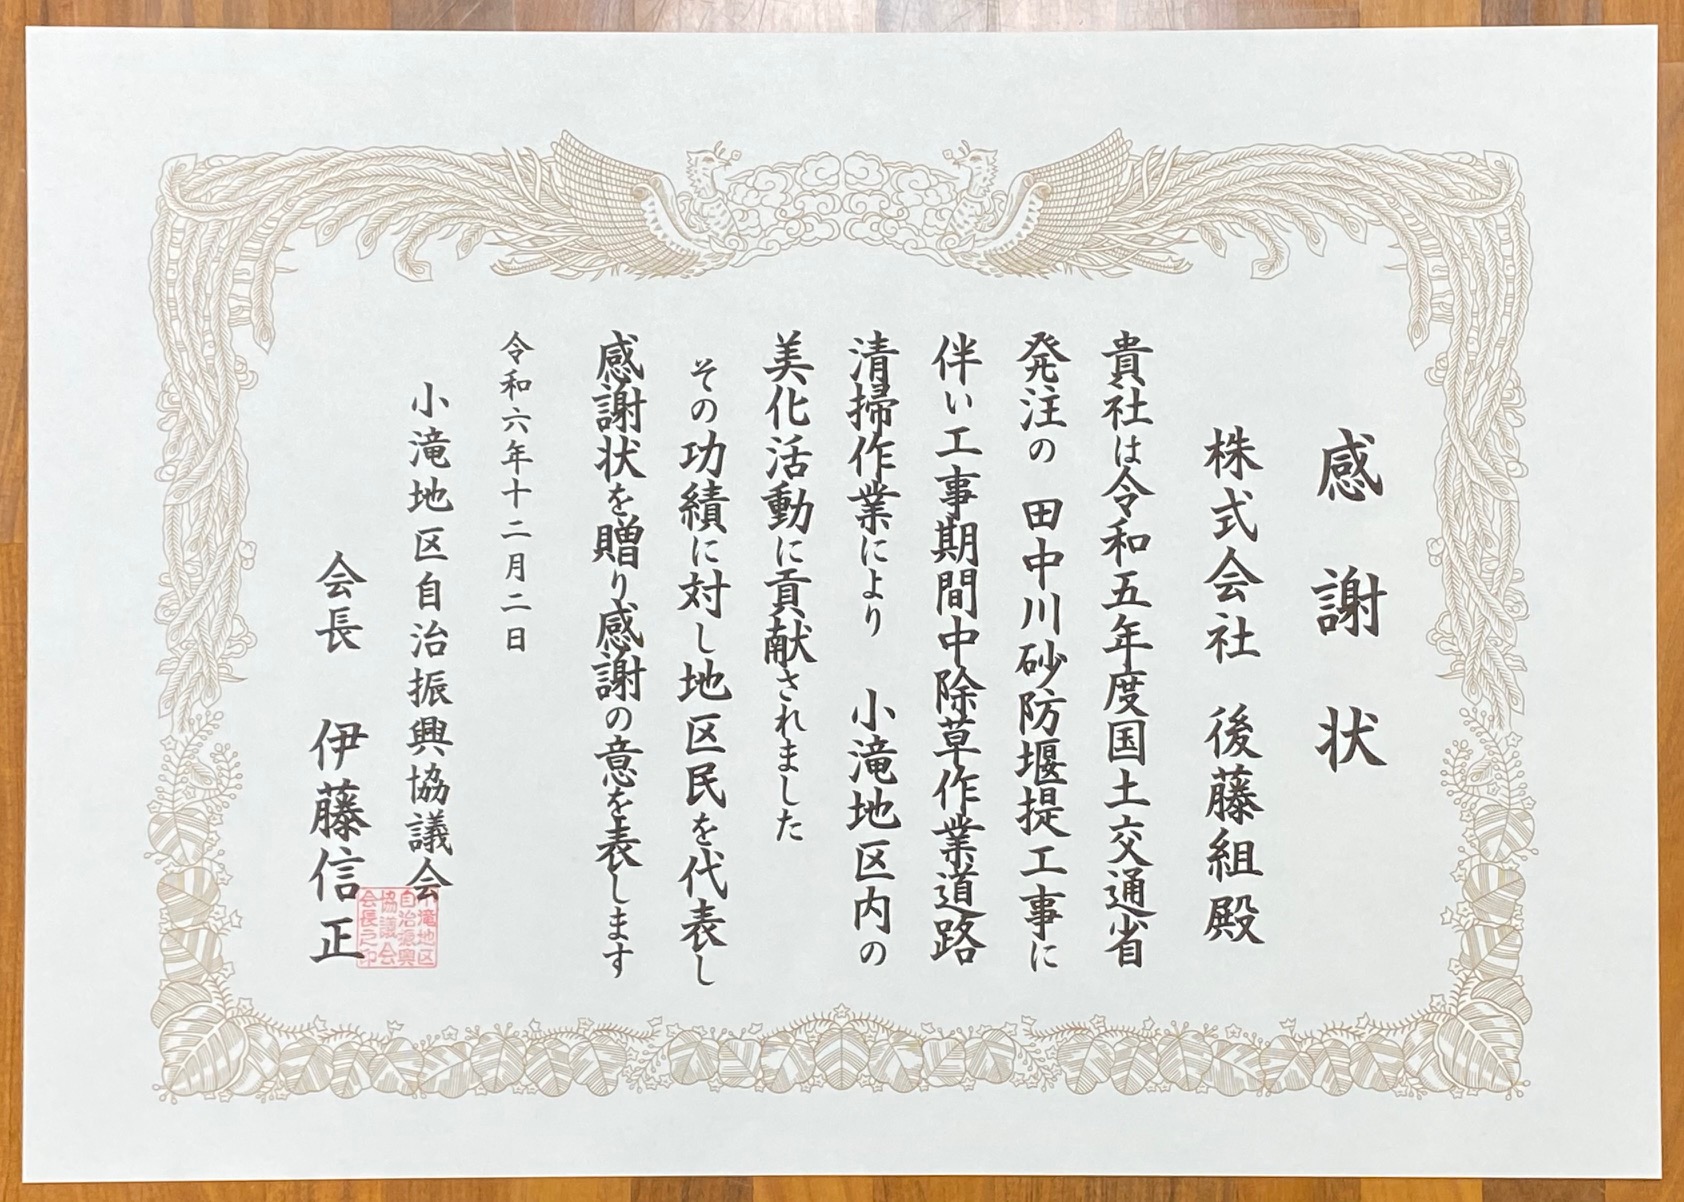 感謝状
株式会社 後藤組殿
貴社は令和五年度国土交通省
発注の 田中川砂防堰提工事に
伴い工事期間中除草作業道路
清掃作業により 小滝地区内の
美化活動に貢献されました
その功績に対し地区民を代表し
感謝状を贈り感謝の意を表します
令和六年十二月二日
小滝地区自治振興協議会
会長 伊藤信正
小滝地区
自治振興
協議会
会長之印